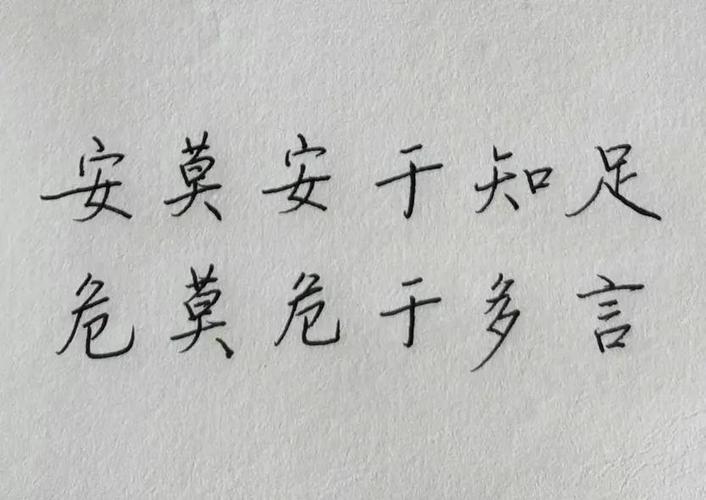 安莫安于知足
危莫危于多言